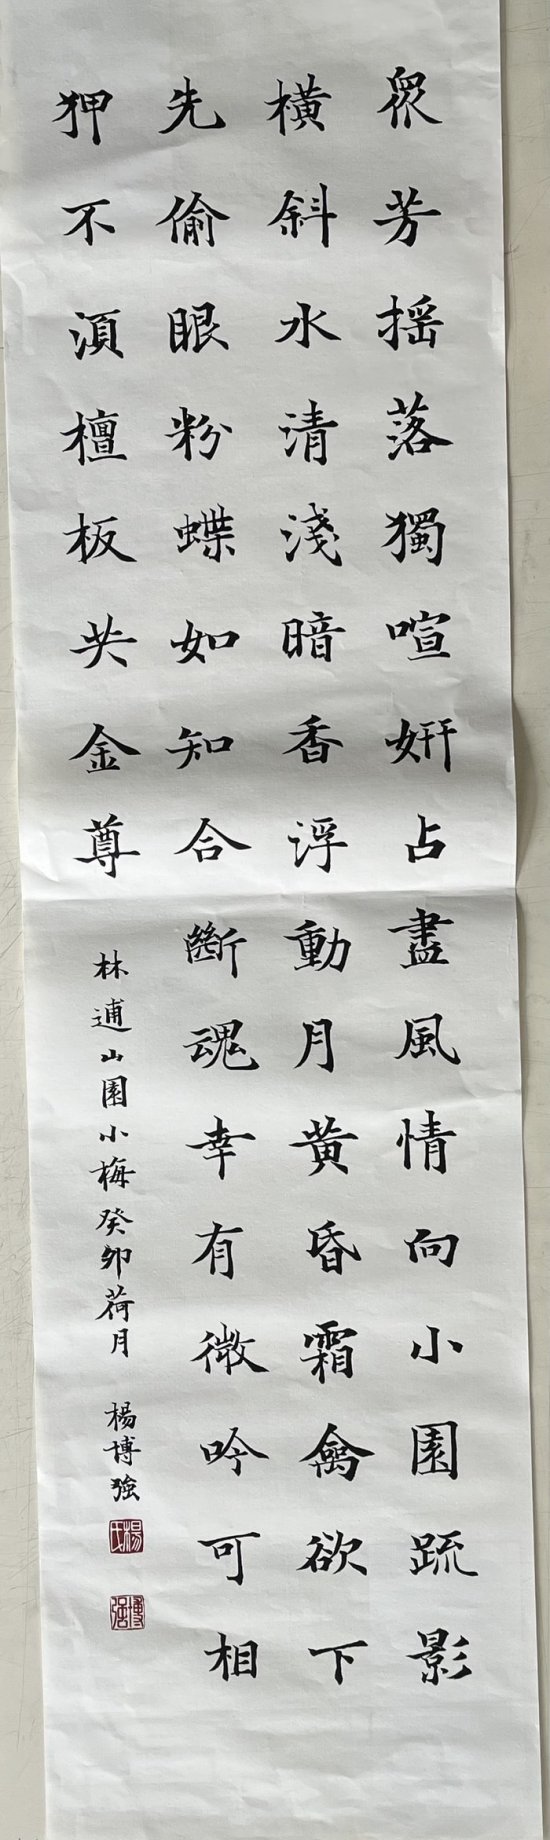 眾芳揺落獨喧妍占盡風情向小園疏影
橫斜水清淺暗香浮動月黃昏霜禽欲下
先偷眼粉蝶如知合斷魂幸有微吟可相
狎不須檀板共金尊
林逋山園小梅癸卯荷月
楊博強
楊氏
博強